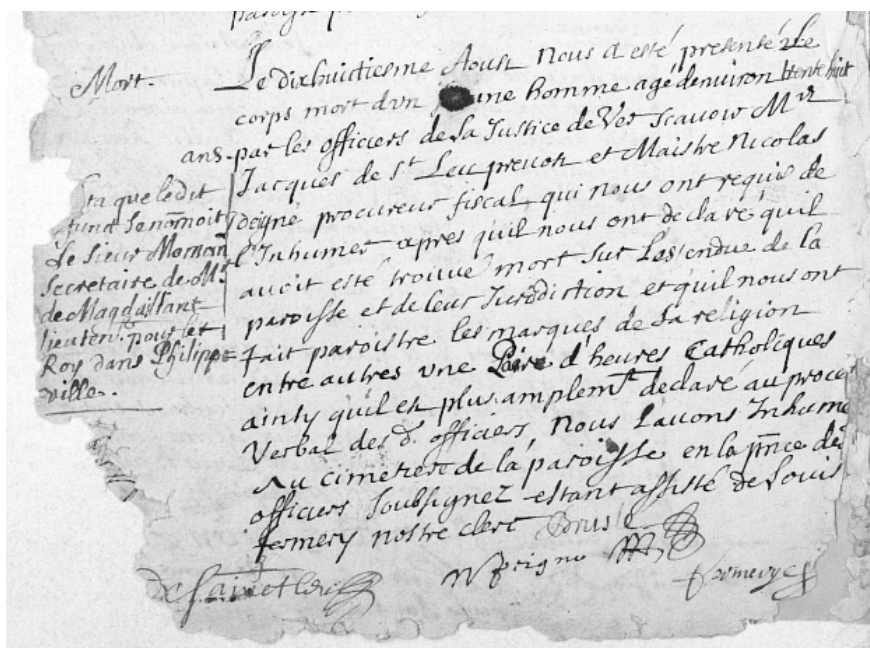 Mort.
Le dixhuictiesme Aoust Nous a esté presenté Le
corps mort d'un jeune homme agé denviron trente huit
ans. par les officiers de la Justice de Ver Scavoir Mr
Jacques de St Leu prevost et Maistre Nicolas
Deigne procureur fiscal, qui nous ont requis de
l'Inhumer apres qu'il nous ont declaré qu'il
avoit esté trouvé mort sur Lestendue de la
paroisse et de leur Jurisdiction et qu'il nous ont
fait paroistre les marques de sa religion
entre autres une Paire d'heures Catholiques
ainsy qu'il est plus amplemt declaré au proces
Verbal des d. officiers, Nous Lavons Inhumé
Au cimetiere de la paroisse en la pnce des
officiers soubsignez estant assisté de Louis
fermery nostre clerc
ta que ledit
funct se nõmoit
Le sieur Mornan
Secretaire de Mr
de Magdaillanc
lieuten. pour le
Roy dans Philippe=
ville.
De sainct leu
N Deigne
formery